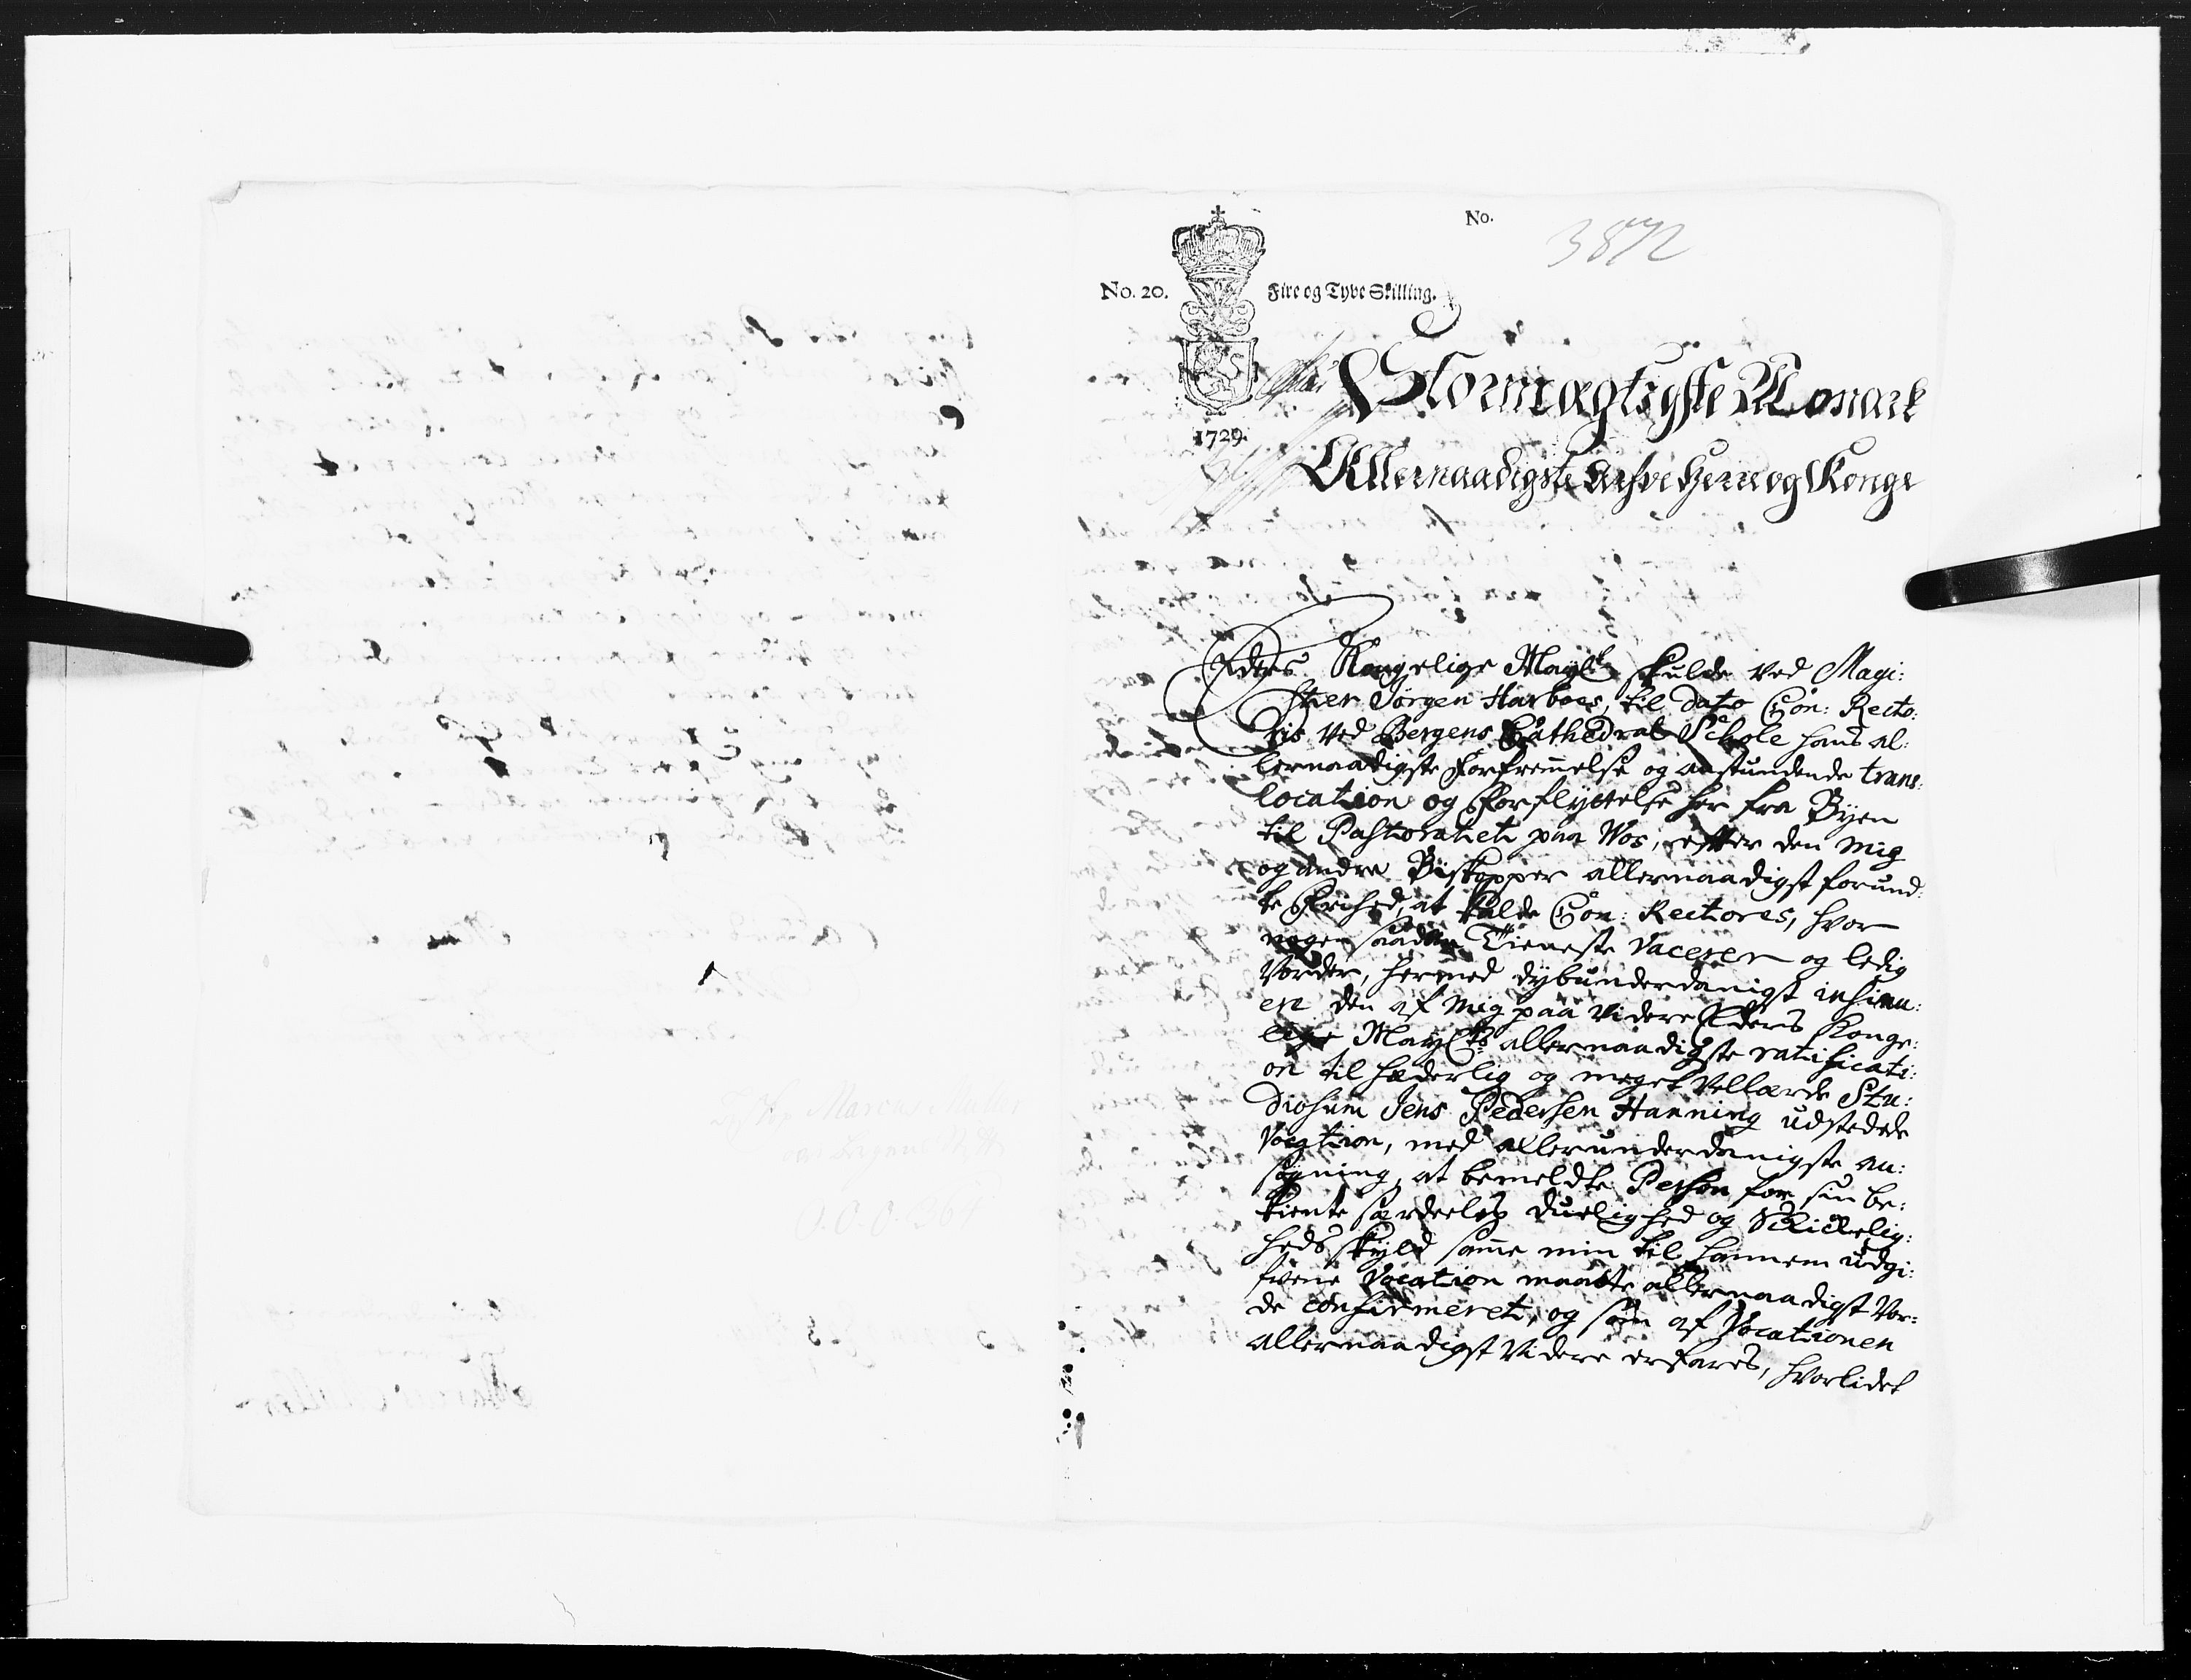 No.
3872
No. 20.
Fire og Tyve Skilling.
1729.
Stormægtigste Monark
Allernaadigste Arfve Herre og Konge
Eders Kongelige Mayts skulde ved Magi:
ster Jörgen Harboes, til dato Con: Recto:
ris ved Bergens Cathedral Schole hans al:
lernaadigste Forfremmelse og anstundende trans:
location og Forflyttelse her fra Byen
til Pastoratet paa Wos, efter den mig
og andre Biskopper allernaadigst forund:
te Frihed, at kalde Con: Rectores, hvor
nogen saadan Tieneste vacerer og ledig
vorder, hermed dybunderdanigst insinu:
ere den af mig paa videre Eders Konge:
lige Mayts allernaadigste ratificati:
on til hæderlig og meget Vellærde Stu:
diosum Jens Pedersen Hanning udstedede
Vocation, med allerunderdanigste an:
søgning, at bemeldte Person for sin be:
kiente særdeeles duelighed og Skickelig:
heds skyld samme min til hannem udgi:
fvene Vocation maatte allernaadigst vor:
de confirmeret, og som af Vocationen
allernaadigst videre erfares, hvorlidet